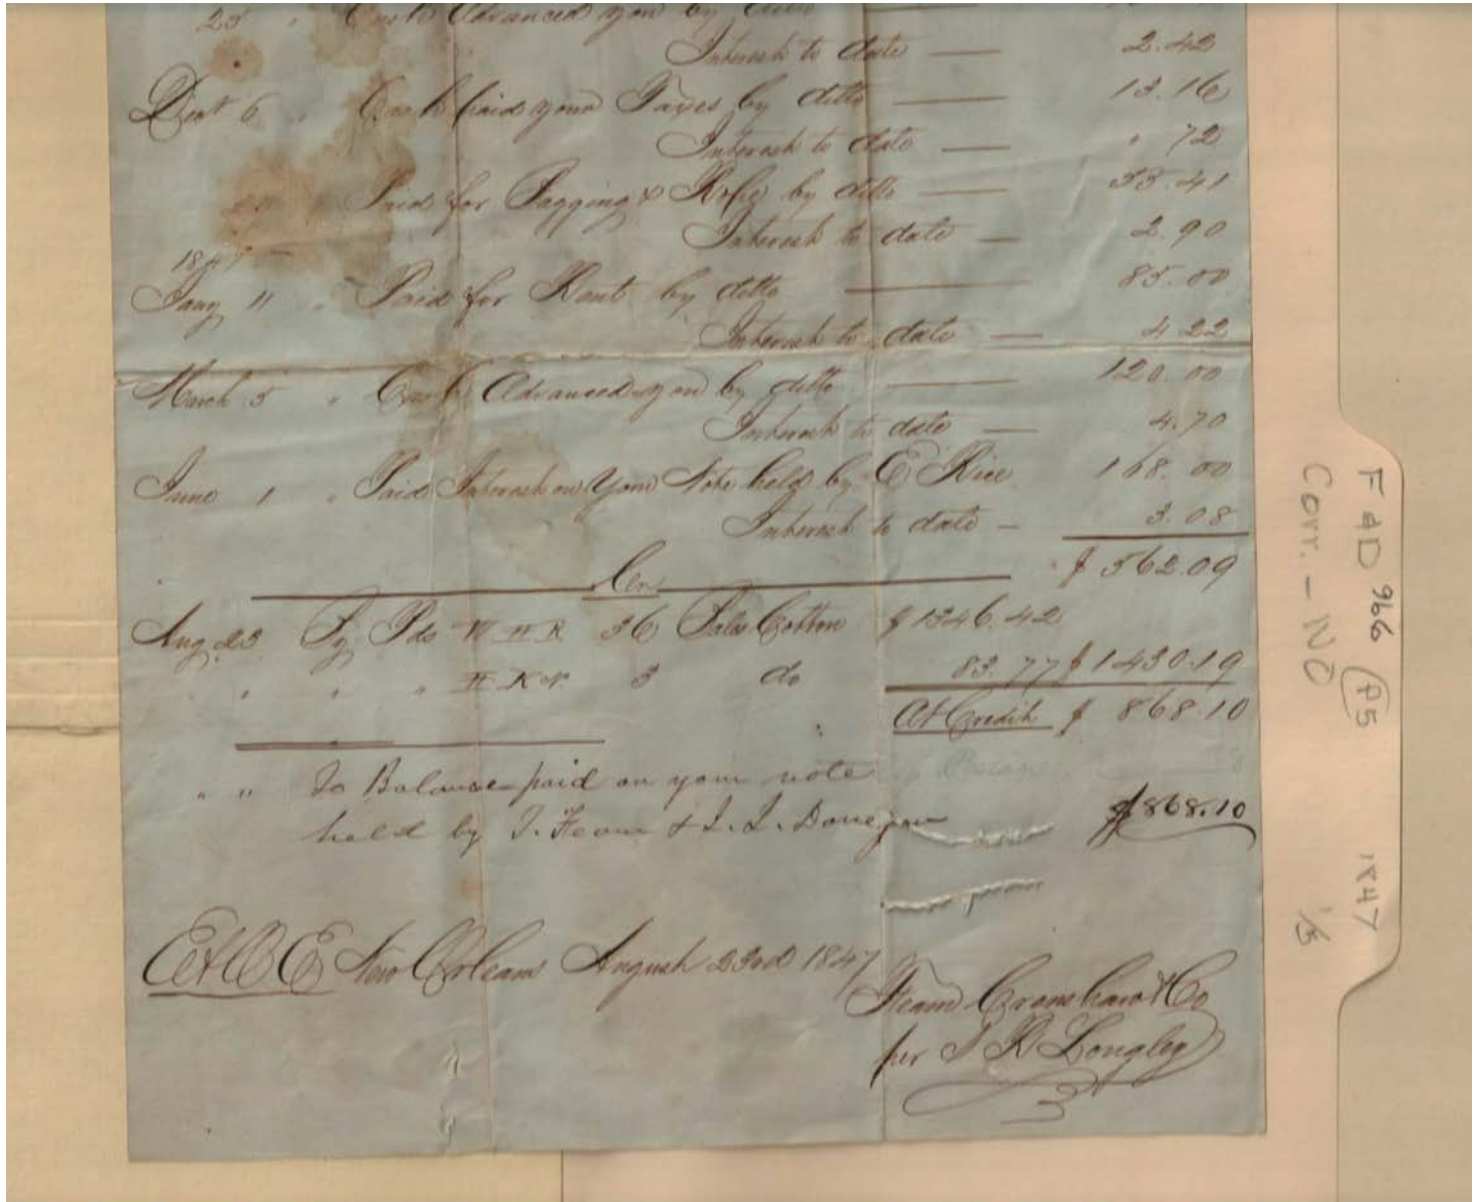 25 " Cash Advanced you by ditto
Interest to date — 2.42
Dect 6 " Cash paid your Taxes by ditto — 13.16
Interest to date — " 72
" Paid for Bagging & Rope by ditto — 53.41
Interest to date — 2.90
1847
Jany 11 " Paid for Rent by ditto — 85.00
Interest to date — 4 22
March 5 " Cash Advanced you by ditto — 120.00
Interest to date — 4.70
June 1 " Paid Interest on Your Note held by E Rice 168.00
Interest to date — 3.08
$ 562.09
Cr.
Aug 23 By Pds 36 Bales Cotton $ 1346.42
" " " 3 do 83.77 $ 1430.19
At Credit $ 868.10
" " To Balance paid on your note
held by T. Fearn & J. J. Donegan $868.10
E & O E New Orleans August 23rd 1847
Fearn Crenshaw & Co
per S R Longley
F&D 966 P5 1847
Corr. - NO 1/3